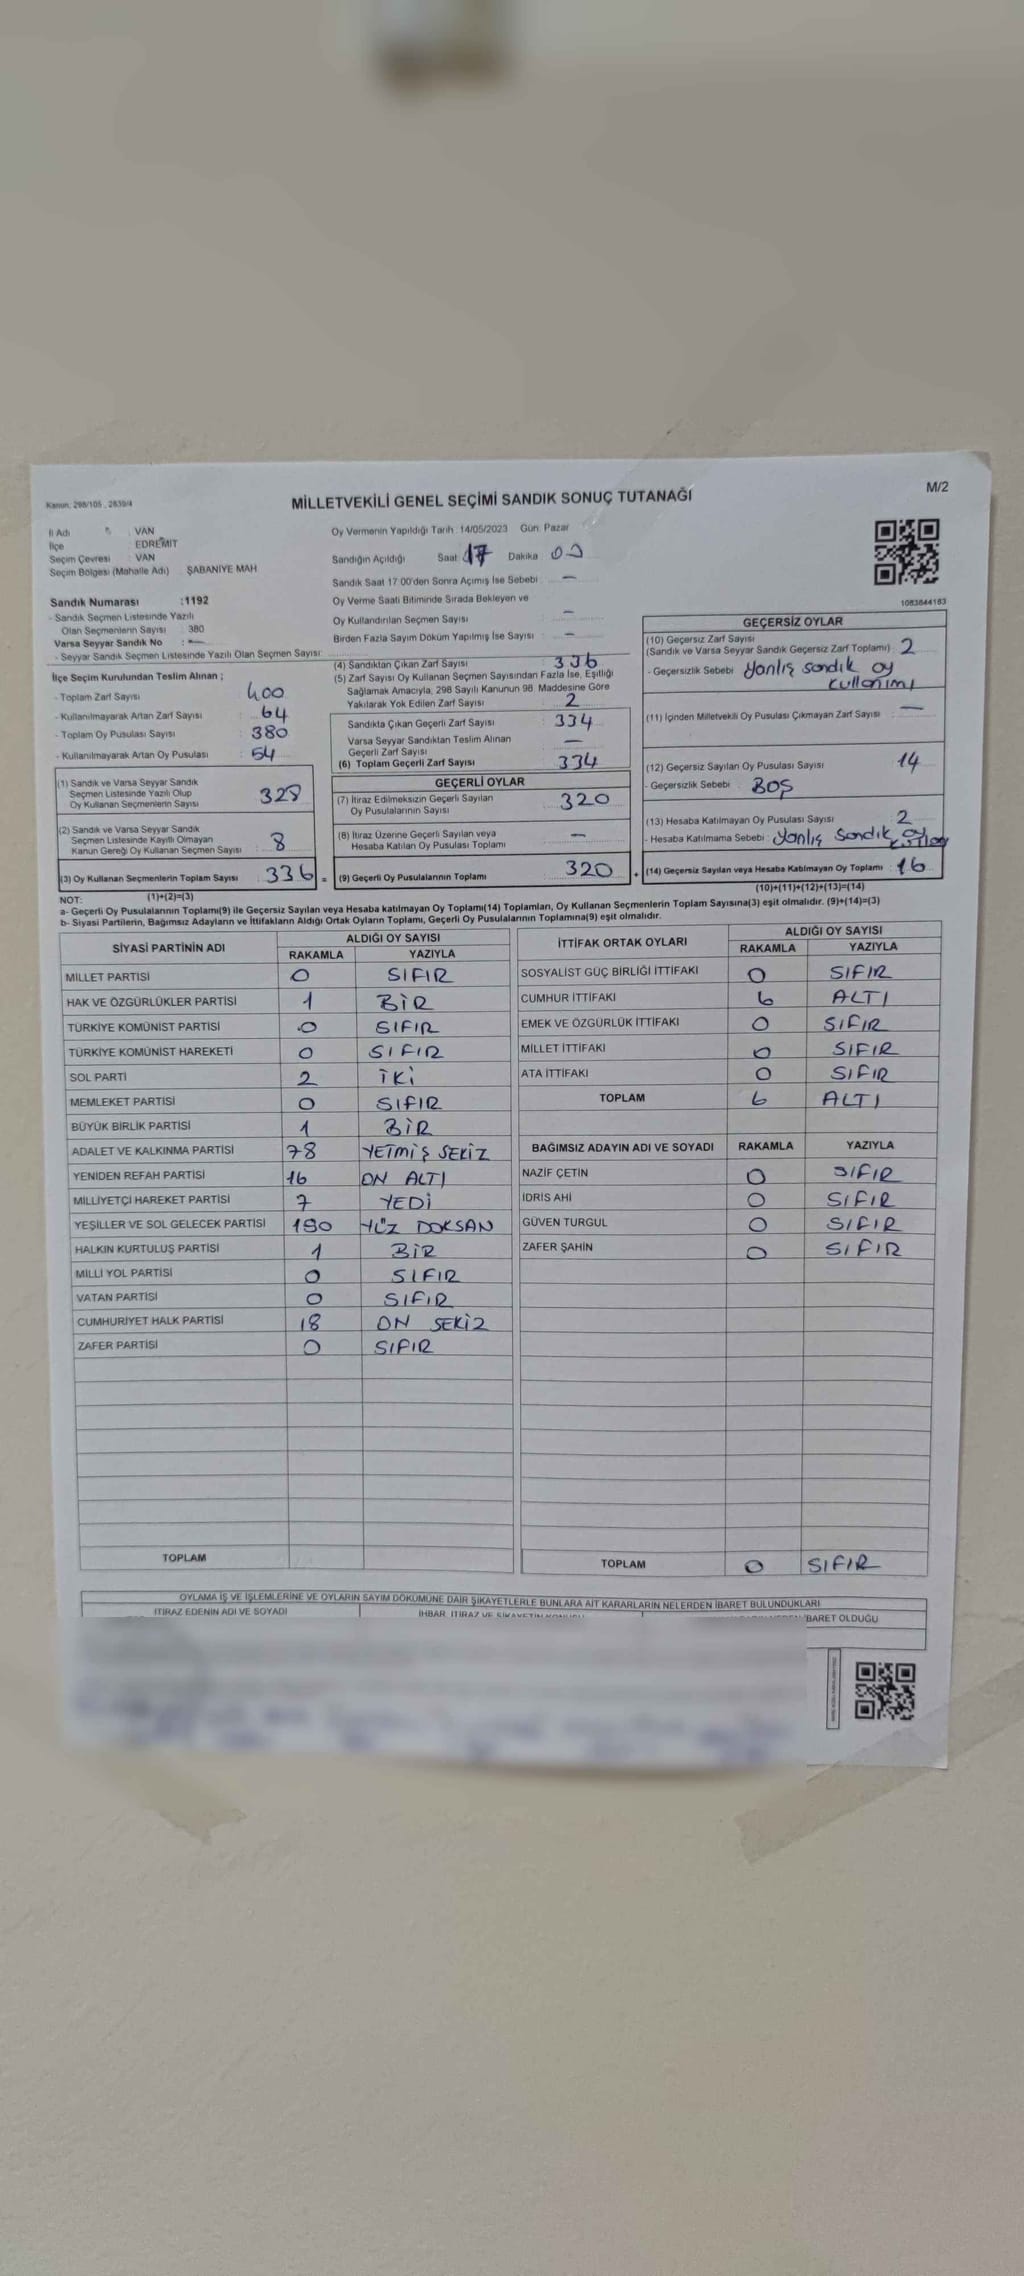 Kanun: 298/105 , 2839/4
M/2
MİLLETVEKİLİ GENEL SEÇİMİ SANDIK SONUÇ TUTANAĞI
İl Adı : VAN
İlçe : EDREMİT
Seçim Çevresi : VAN
Seçim Bölgesi (Mahalle Adı) ŞABANİYE MAH
Sandık Numarası :1192
- Sandık Seçmen Listesinde Yazılı
Olan Seçmenlerin Sayısı : 380
Varsa Seyyar Sandık No : —
- Seyyar Sandık Seçmen Listesinde Yazılı Olan Seçmen Sayısı:
İlçe Seçim Kurulundan Teslim Alınan ;
- Toplam Zarf Sayısı : 400
- Kullanılmayarak Artan Zarf Sayısı : 64
- Toplam Oy Pusulası Sayısı : 380
- Kullanılmayarak Artan Oy Pusulası : 54
(1) Sandık ve Varsa Seyyar Sandık
Seçmen Listesinde Yazılı Olup
Oy Kullanan Seçmenlerin Sayısı 328
(2) Sandık ve Varsa Seyyar Sandık
Seçmen Listesinde Kayıtlı Olmayan
Kanun Gereği Oy Kullanan Seçmen Sayısı : 8
(3) Oy Kullanan Seçmenlerin Toplam Sayısı : 336 =
(1)+(2)=(3)
Oy Vermenin Yapıldığı Tarih :14/05/2023 Gün: Pazar
Sandığın Açıldığı Saat : 17 Dakika : 00
Sandık Saat 17:00'den Sonra Açılmış İse Sebebi : —
Oy Verme Saati Bitiminde Sırada Bekleyen ve
Oy Kullandırılan Seçmen Sayısı : —
Birden Fazla Sayım Döküm Yapılmış İse Sayısı : —
(4) Sandıktan Çıkan Zarf Sayısı : 336
(5) Zarf Sayısı Oy Kullanan Seçmen Sayısından Fazla İse, Eşitliği
Sağlamak Amacıyla, 298 Sayılı Kanunun 98. Maddesine Göre
Yakılarak Yok Edilen Zarf Sayısı : 2
Sandıkta Çıkan Geçerli Zarf Sayısı : 334
Varsa Seyyar Sandıktan Teslim Alınan
Geçerli Zarf Sayısı : —
(6) Toplam Geçerli Zarf Sayısı : 334
GEÇERLİ OYLAR
(7) İtiraz Edilmeksizin Geçerli Sayılan
Oy Pusulalarının Sayısı : 320
(8) İtiraz Üzerine Geçerli Sayılan veya
Hesaba Katılan Oy Pusulası Toplamı : —
(9) Geçerli Oy Pusulalarının Toplamı : 320 +
1083844183
GEÇERSİZ OYLAR
(10) Geçersiz Zarf Sayısı
(Sandık ve Varsa Seyyar Sandık Geçersiz Zarf Toplamı) : 2
- Geçersizlik Sebebi : Yanlış sandık oy
kullanımı
(11) İçinden Milletvekili Oy Pusulası Çıkmayan Zarf Sayısı : —
(12) Geçersiz Sayılan Oy Pusulası Sayısı : 14
- Geçersizlik Sebebi : BOŞ
(13) Hesaba Katılmayan Oy Pusulası Sayısı : 2
- Hesaba Katılmama Sebebi : Yanlış Sandık oy
(14) Geçersiz Sayılan veya Hesaba Katılmayan Oy Toplamı : 16
(10)+(11)+(12)+(13)=(14)
NOT:
a- Geçerli Oy Pusulalarının Toplamı(9) ile Geçersiz Sayılan veya Hesaba katılmayan Oy Toplamı(14) Toplamları, Oy Kullanan Seçmenlerin Toplam Sayısına(3) eşit olmalıdır. (9)+(14)=(3)
b- Siyasi Partilerin, Bağımsız Adayların ve İttifakların Aldığı Ortak Oyların Toplamı, Geçerli Oy Pusulalarının Toplamına(9) eşit olmalıdır.
SİYASİ PARTİNİN ADI ALDIĞI OY SAYISI
RAKAMLA YAZIYLA
MİLLET PARTİSİ 0 SIFIR
HAK VE ÖZGÜRLÜKLER PARTİSİ 1 BİR
TÜRKİYE KOMÜNİST PARTİSİ 0 SIFIR
TÜRKİYE KOMÜNİST HAREKETİ 0 SIFIR
SOL PARTİ 2 İKİ
MEMLEKET PARTİSİ 0 SIFIR
BÜYÜK BİRLİK PARTİSİ 1 BİR
ADALET VE KALKINMA PARTİSİ 78 YETMİŞ SEKİZ
YENİDEN REFAH PARTİSİ 16 ON ALTI
MİLLİYETÇİ HAREKET PARTİSİ 7 YEDİ
YEŞİLLER VE SOL GELECEK PARTİSİ 190 YÜZ DOKSAN
HALKIN KURTULUŞ PARTİSİ 1 BİR
MİLLİ YOL PARTİSİ 0 SIFIR
VATAN PARTİSİ 0 SIFIR
CUMHURİYET HALK PARTİSİ 18 ON SEKİZ
ZAFER PARTİSİ 0 SIFIR
TOPLAM
İTTİFAK ORTAK OYLARI ALDIĞI OY SAYISI
RAKAMLA YAZIYLA
SOSYALİST GÜÇ BİRLİĞİ İTTİFAKI 0 SIFIR
CUMHUR İTTİFAKI 6 ALTI
EMEK VE ÖZGÜRLÜK İTTİFAKI 0 SIFIR
MİLLET İTTİFAKI 0 SIFIR
ATA İTTİFAKI 0 SIFIR
TOPLAM 6 ALTI
BAĞIMSIZ ADAYIN ADI VE SOYADI RAKAMLA YAZIYLA
NAZİF ÇETİN 0 SIFIR
İDRİS AHİ 0 SIFIR
GÜVEN TURGUL 0 SIFIR
ZAFER ŞAHİN 0 SIFIR
TOPLAM 0 SIFIR
OYLAMA İŞ VE İŞLEMLERİNE VE OYLARIN SAYIM DÖKÜMÜNE DAİR ŞİKAYETLERLE BUNLARA AİT KARARLARIN NELERDEN İBARET BULUNDUKLARI
İTİRAZ EDENİN ADI VE SOYADI İHBAR, İTİRAZ VE ŞİKAYETİN KONUSU İBARET OLDUĞU